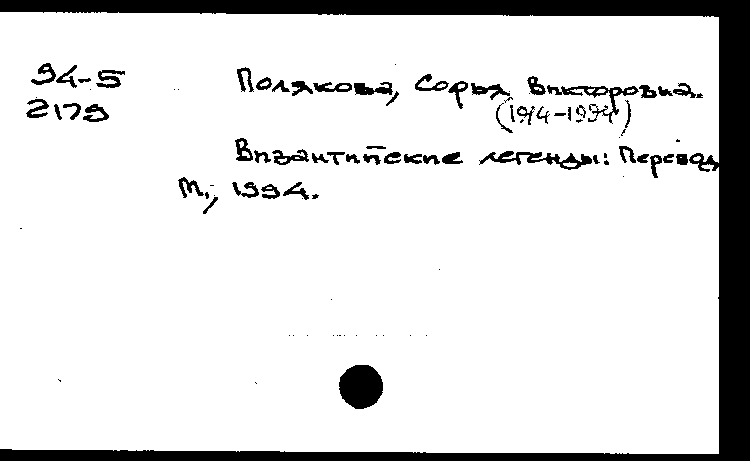 94-5
2179
Полякова, Софья Викторовна.
(1914-1994)
Византийские легенды: Перевод,
М., 1994.